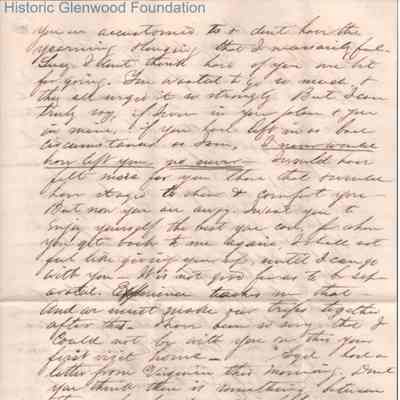 Historic Glenwood Foundation
you are accustomed to & don't have the
yearning longing that I necessarily feel.
I don't think hard of you one bit
for going. You wanted to go so much &
they all urged it so strongly But I can
truly say, if I were in your place & you
in mine, if you were left in as
circumstances as I am, I never would
have left you, no never I would have
felt more for you than that & would
have staid to cheer & comfort you
But now you are away I want you to
enjoy yourself the best you can, for when
you get back to me again, I shall not
feel like giving you up until I can go
with you It is not good for us to be sep-
arated. Experience teaches me that
And we must make our trips together
after this. I have been so sorry that I
could not be with you on this your
first visit home I got a
letter from Virginia this morning. Don't
you think there is something between